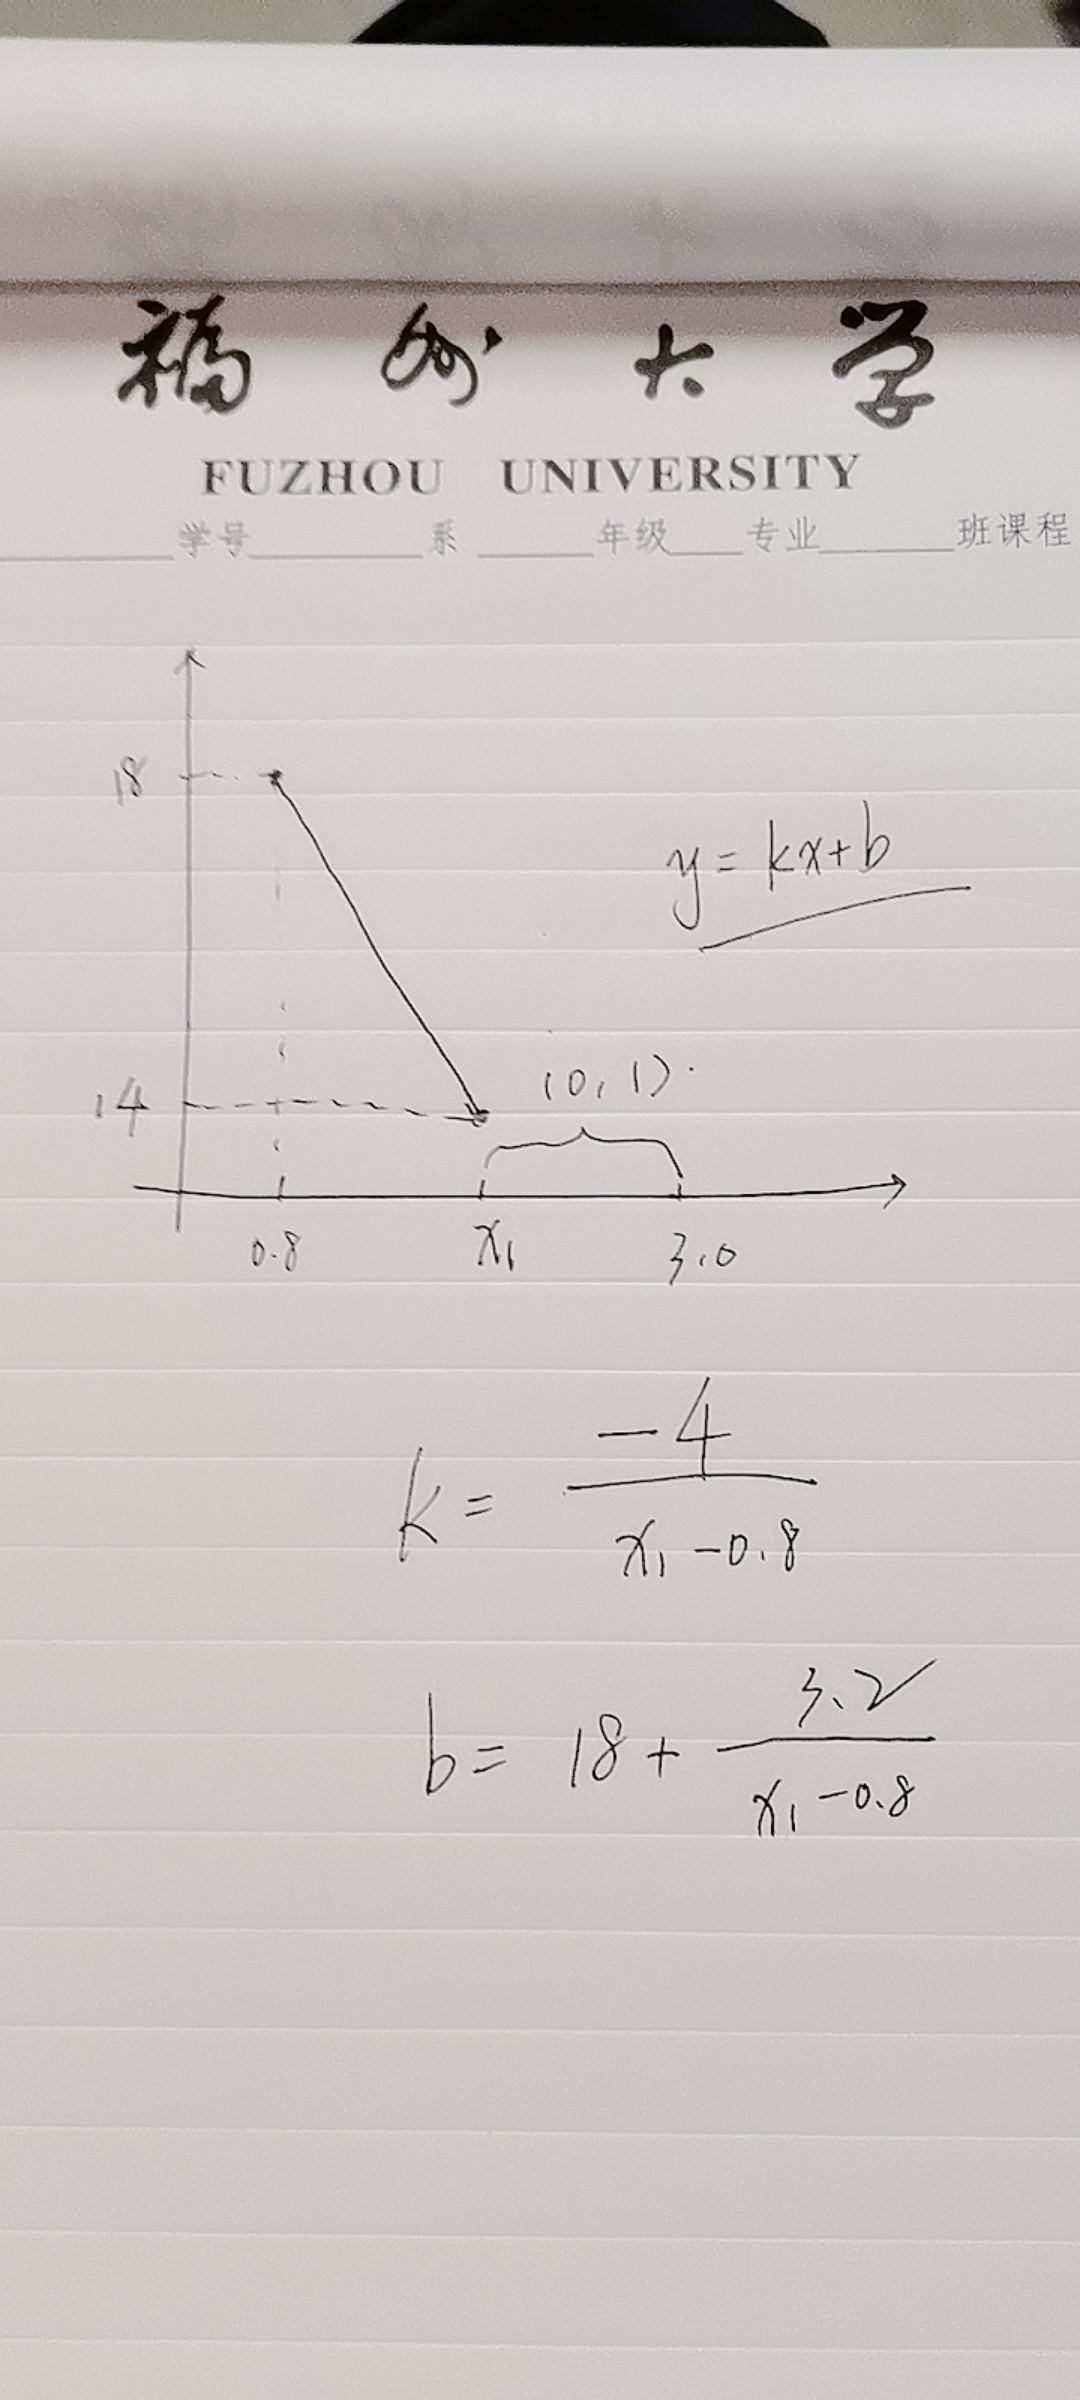 福州大学
FUZHOU UNIVERSITY
学号 系 年级 专业 班课程
18
y = kx+b
14
(0, 1)
0.8 x₁ 3.0
k = -4 / (x₁ - 0.8)
b = 18 + 3.2 / (x₁ - 0.8)